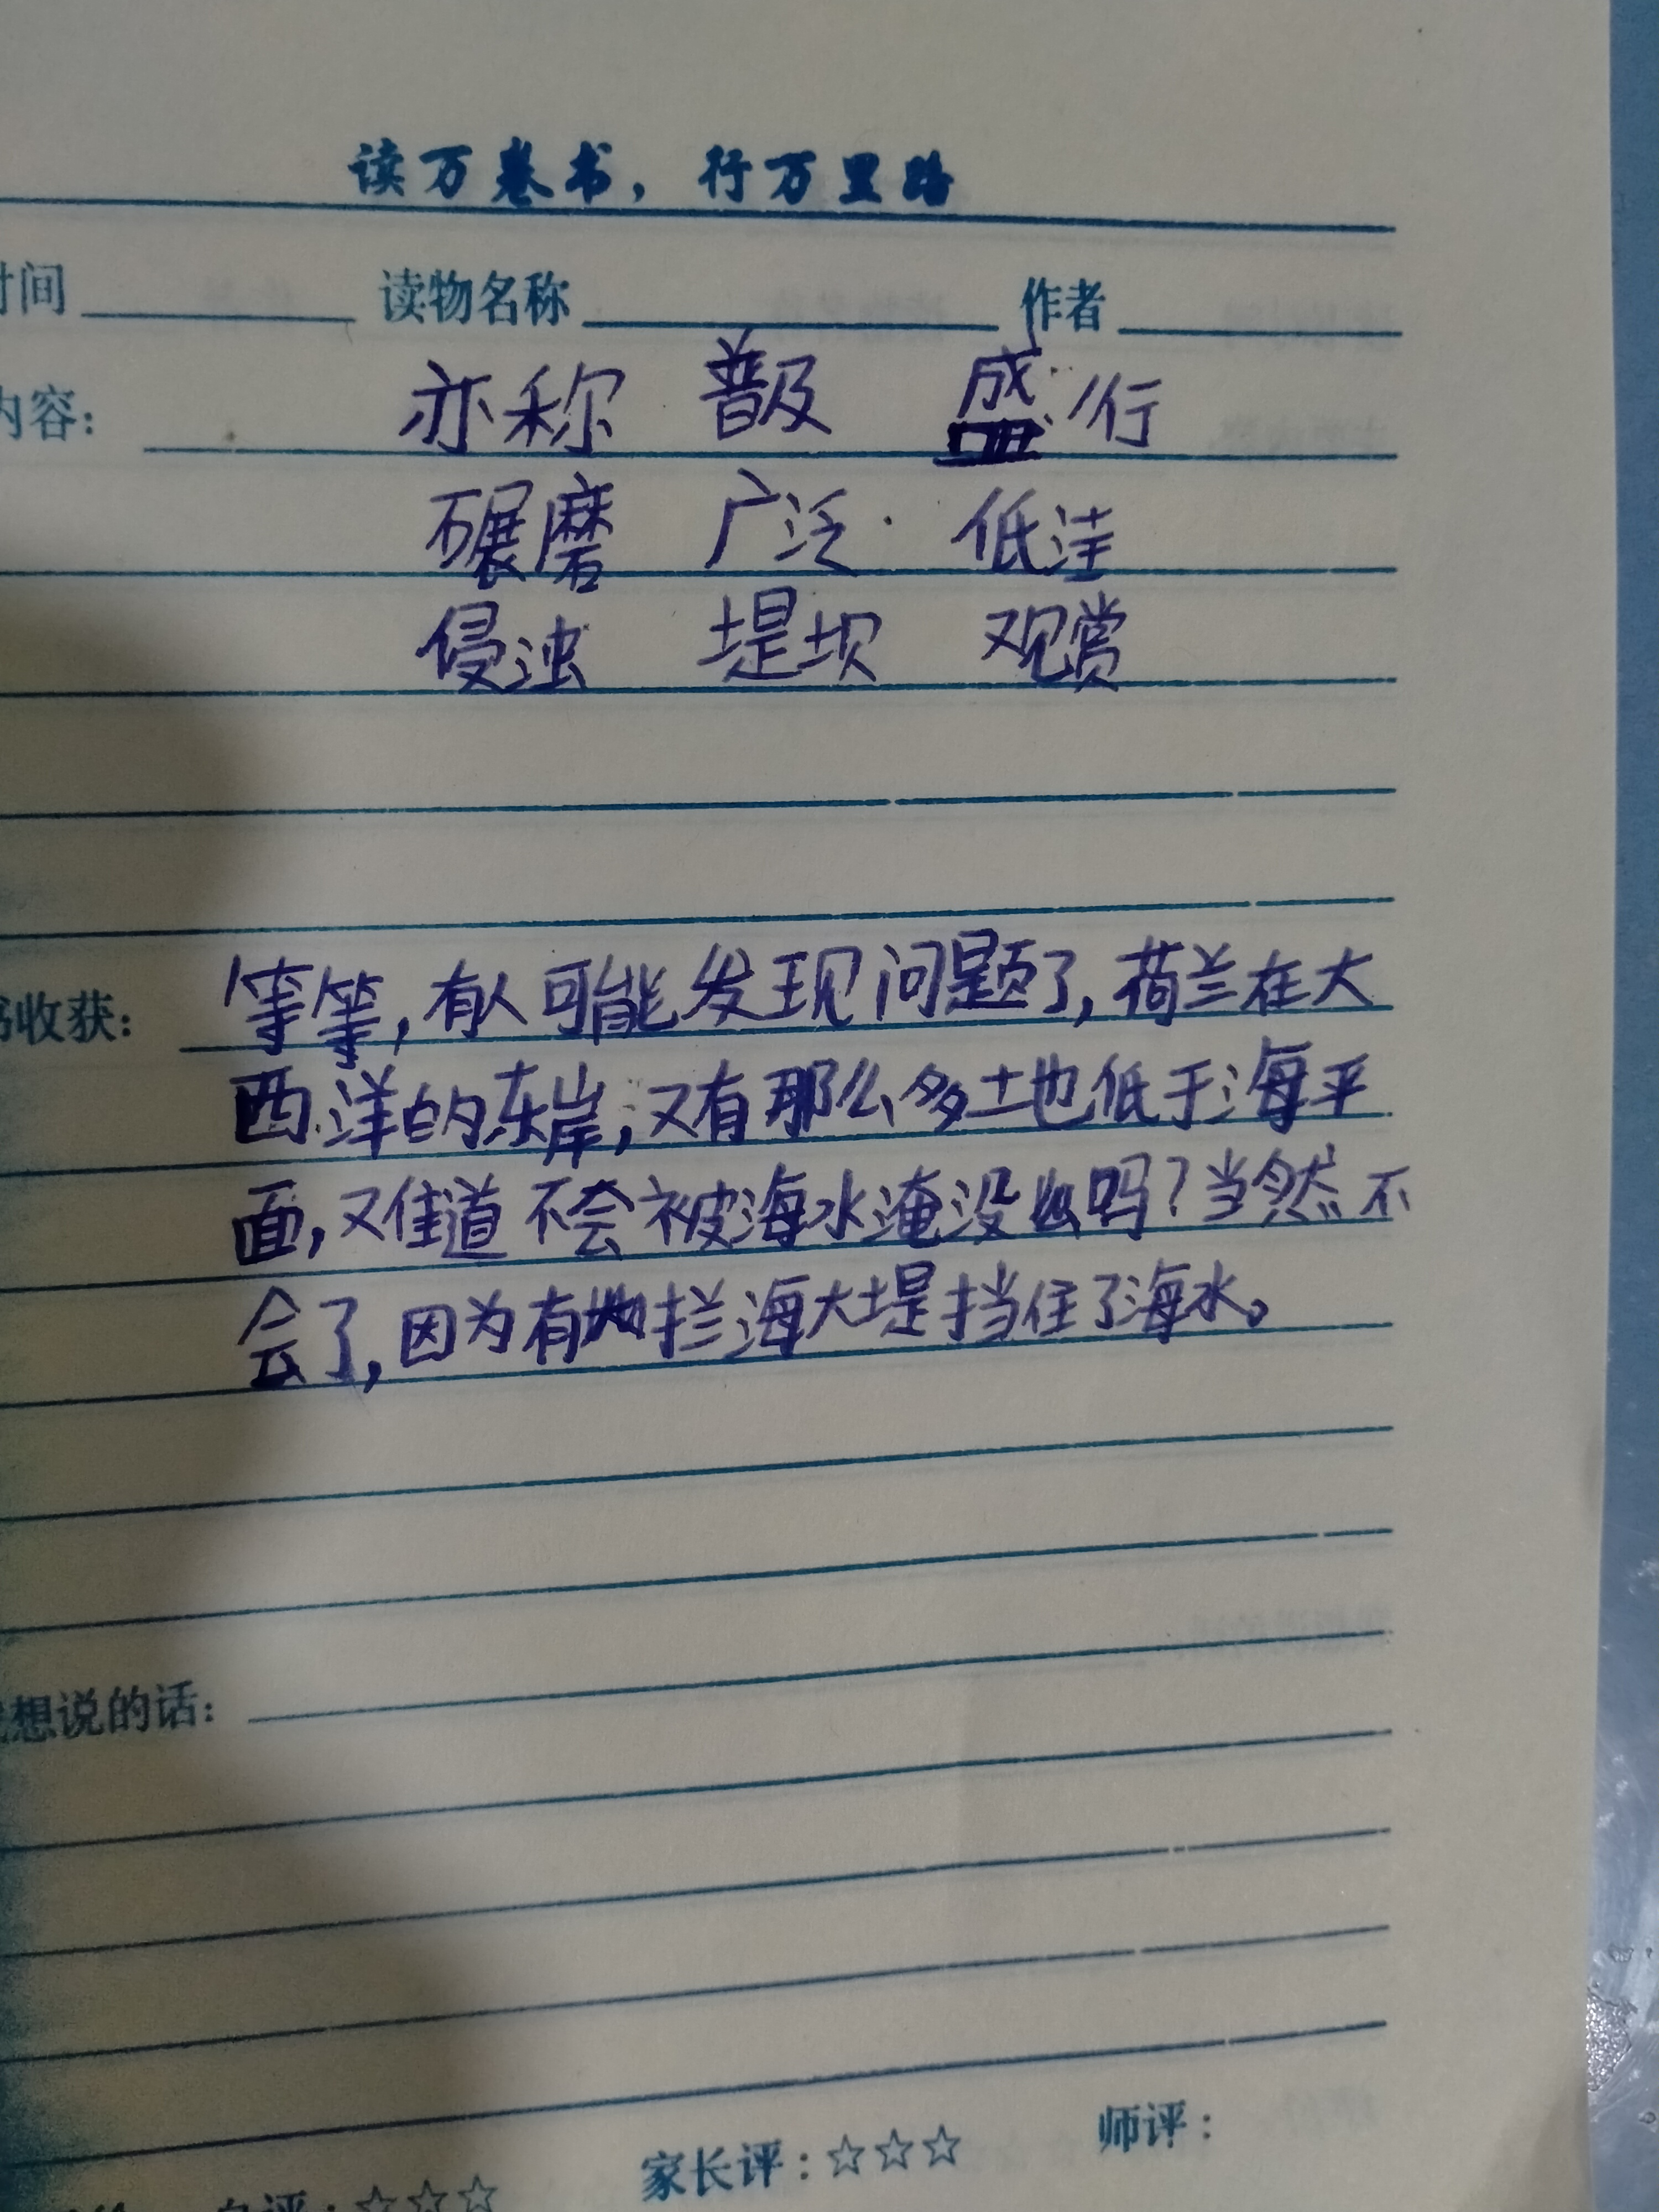 读万卷书，行万里路
时间 读物名称 作者
内容： 亦称 普及 盛行
碾磨 广泛 低洼
侵浊 堤坝 观赏
书收获： 等等，有人可能发现问题了，荷兰在大
西洋的东岸，又有那么多土地低于海平
面，难道不会被海水淹没吗？当然不
会了，因为有拦海大堤挡住了海水。
我想说的话：
自评：☆☆☆ 家长评：☆☆☆ 师评：